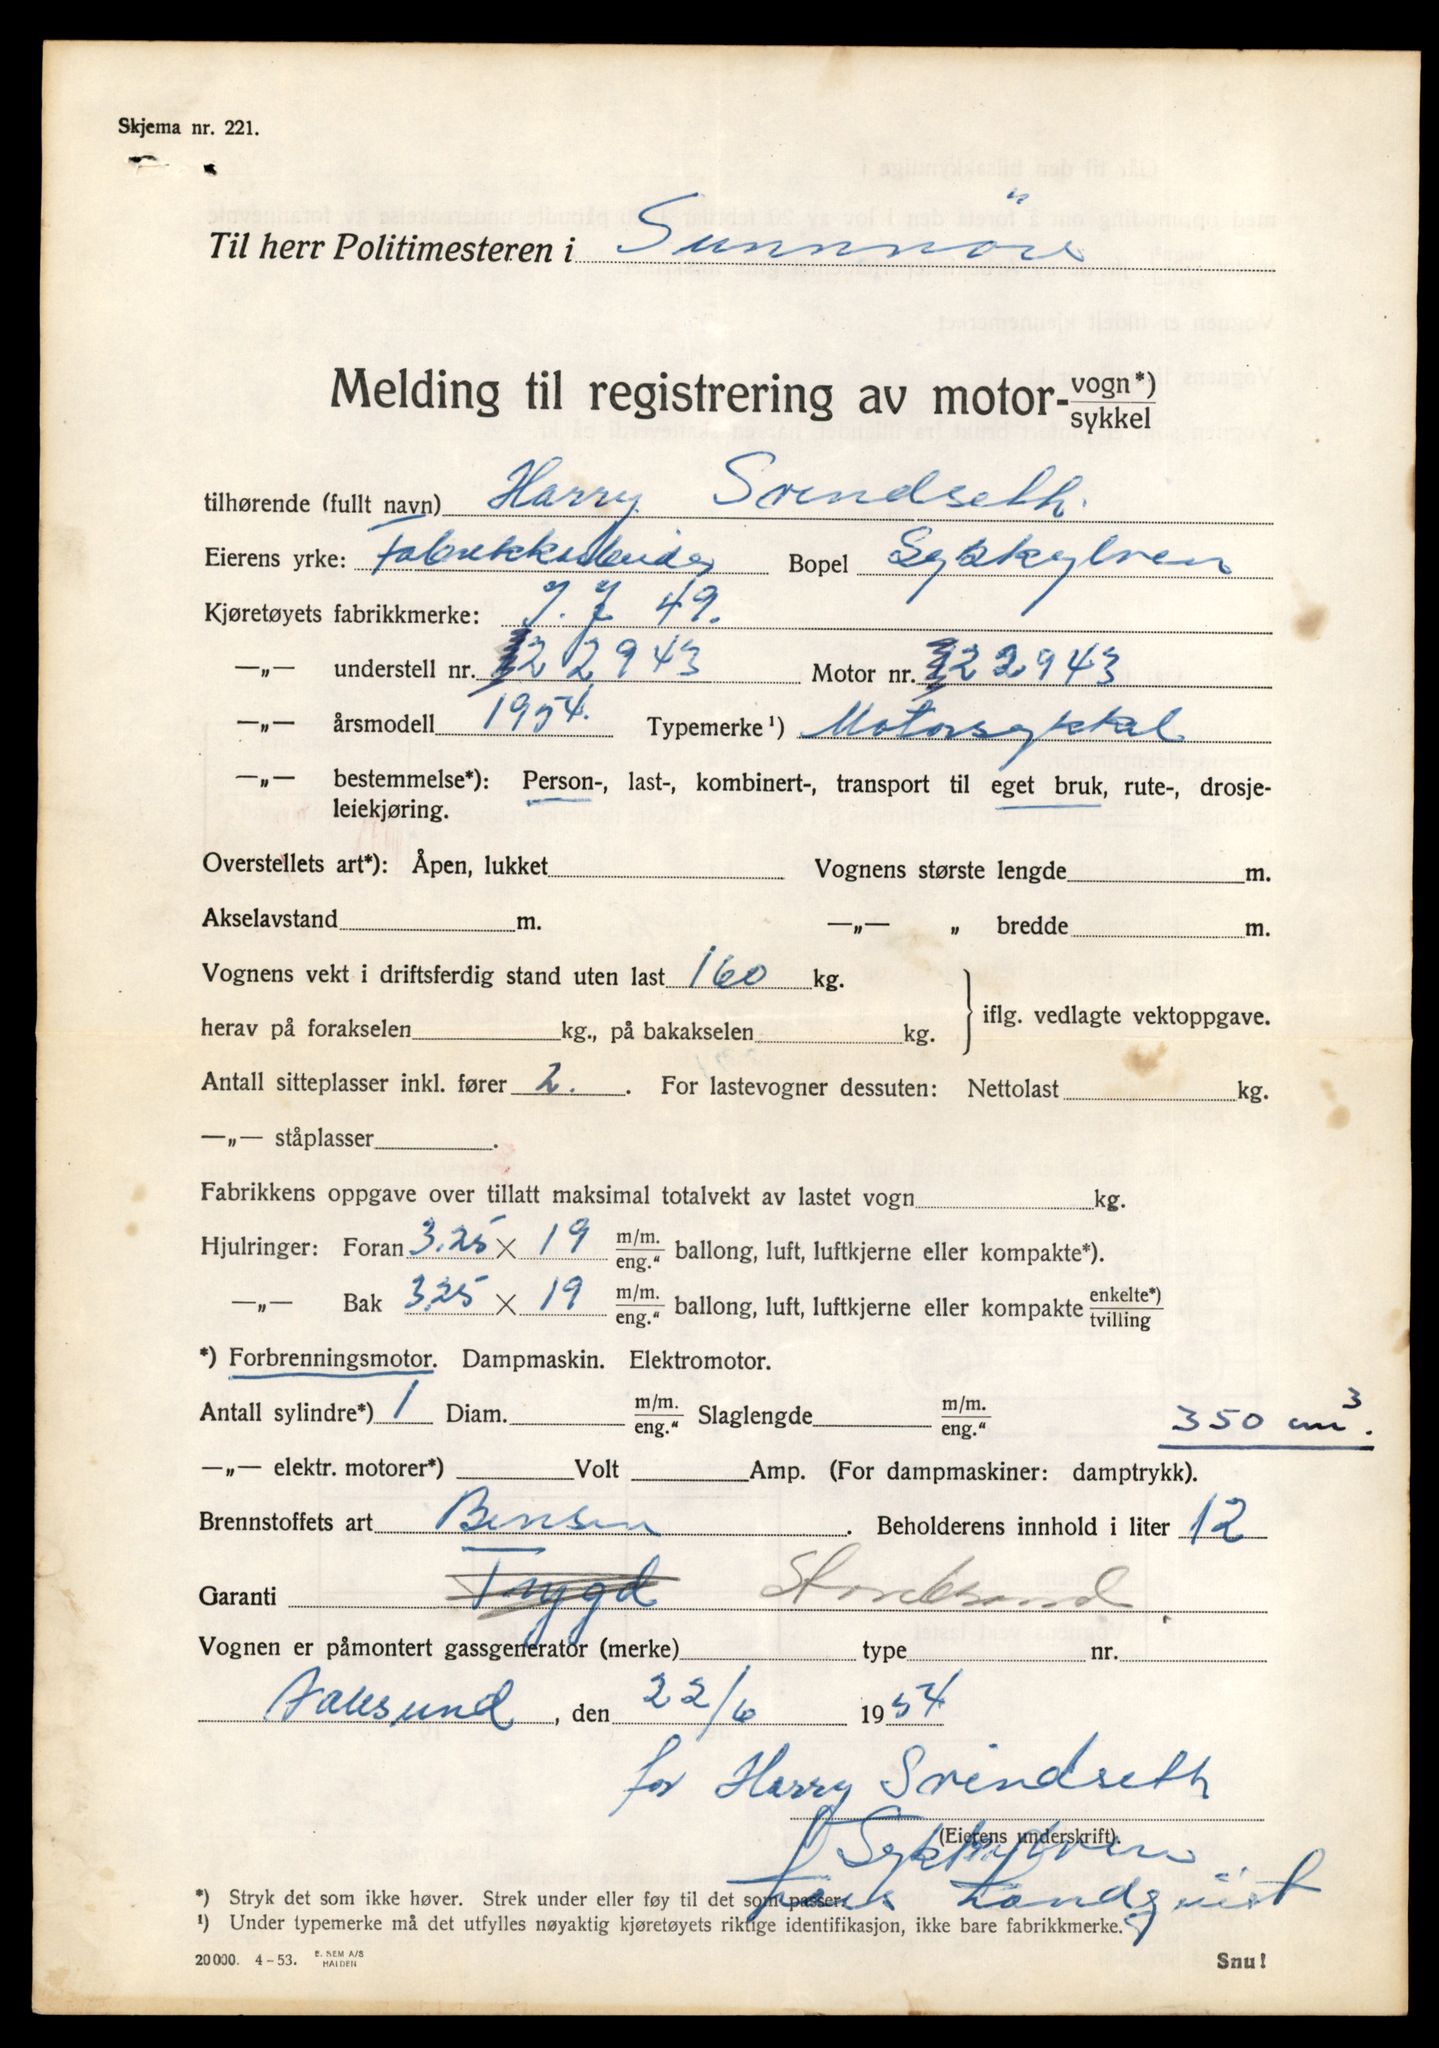 Skjema nr. 221.
Til herr Politimesteren i Sunnmöre
Melding til registrering av motor-vogn*) sykkel
tilhørende (fullt navn) Harry Svendseth.
Eierens yrke: Fabrikkarbeider Bopel Sykkylven
Kjøretøyets fabrikkmerke: J. Z 49.
—„— understell nr. 22943 Motor nr. 22943
—„— årsmodell 1954. Typemerke¹) Motorsykkel
—„— bestemmelse*): Person-, last-, kombinert-, transport til eget bruk, rute-, drosje-
leiekjøring.
Overstellets art*): Åpen, lukket Vognens største lengde m.
Akselavstand m. —„— „ bredde m.
Vognens vekt i driftsferdig stand uten last 160 kg.
herav på forakselen kg., på bakakselen kg. iflg. vedlagte vektoppgave.
Antall sitteplasser inkl. fører 2. . For lastevogner dessuten: Nettolast kg.
—„— ståplasser .
Fabrikkens oppgave over tillatt maksimal totalvekt av lastet vogn kg.
Hjulringer: Foran 3.25 × 19 m/m. eng." ballong, luft, luftkjerne eller kompakte*).
—„— Bak 3.25 × 19 m/m. eng." ballong, luft, luftkjerne eller kompakte enkelte*) tvilling
*) Forbrenningsmotor. Dampmaskin. Elektromotor.
Antall sylindre*) 1 Diam. m/m. eng." Slaglengde m/m. eng." 350 cm³.
—„— elektr. motorer*) Volt Amp. (For dampmaskiner: damptrykk).
Brennstoffets art Bensin . Beholderens innhold i liter 12
Garanti Trygd Storebrand
Vognen er påmontert gassgenerator (merke) type nr.
Aalesund , den 22/6 1954
for Harry Svendseth
(Eierens underskrift).
Sykkylven
*) Stryk det som ikke høver. Strek under eller føy til det som passer. Landqvist
¹) Under typemerke må det utfylles nøyaktig kjøretøyets riktige identifikasjon, ikke bare fabrikkmerke.
20 000. 4 – 53. E. SEM A/S HALDEN Snu!